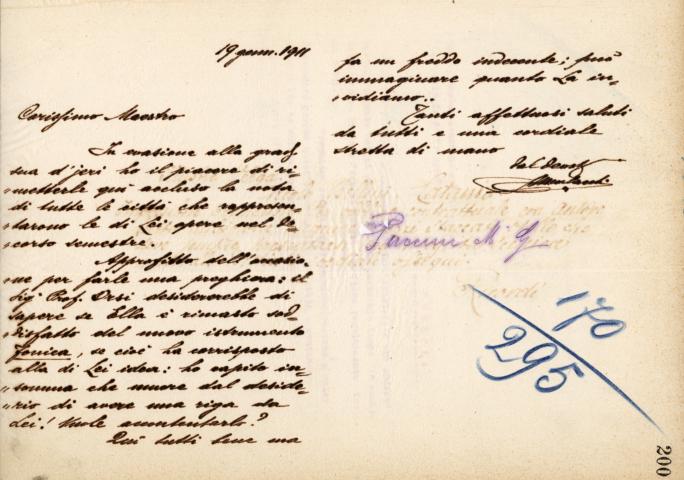 19 genn. 1911
Carissimo Maestro
In evasione alla grad.
sua d'jeri ho il piacere di ri-
metterle qui accluso la nota
di tutte le città che rappresen-
tarono le di Lei opere nel de-
corso semestre.
Approfitto dell'occasio-
ne per farle una preghiera: il
Sig. Prof. Orsi desidererebbe di
sapere se Ella è rimasto sod-
disfatto del nuovo istrumento
fonica, se cioè ha corrisposto
alla di Lei idea: ho capito in-
somma che muore dal deside-
rio di avere una riga da
Lei! Vuole accontentarlo?
Qui tutti bene ma
fa un freddo indecente; può
immaginare quanto La in-
vidiamo..
Tanti affettuosi saluti
da tutti e una cordiale
stretta di mano
dal
Puccini M. G.
170
295
200